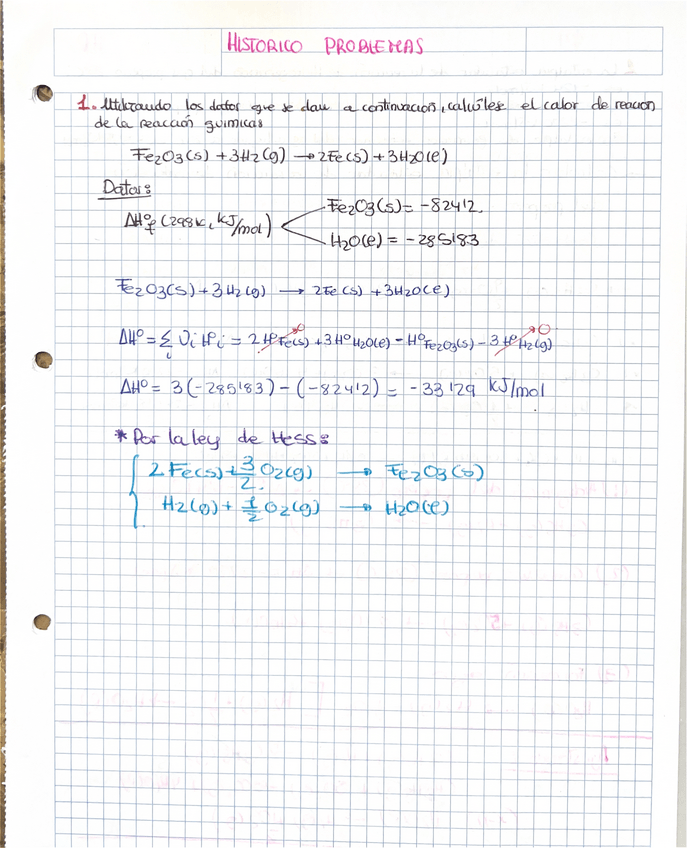 HISTORICO PROBLEMAS
1. Utilizando los datos que se dan a continuacion, calcúlese el calor de reacion
de la reacción quimicas
Fe2O3(s) + 3H2(g) → 2Fe(s) + 3H2O(l)
Datos:
ΔHºf (298K, kJ/mol)
Fe2O3(s) = -824'2.
H2O(l) = -285'83
Fe2O3(s) + 3H2(g) → 2Fe(s) + 3H2O(l)
ΔHº = Σi νi Hºi = 2HºFe(s) + 3HºH2O(l) - HºFe2O3(s) - 3HºH2(g)
0 0
ΔHº = 3(-285'83) - (-824'2) = -33'29 kJ/mol
* Por la ley de Hess:
2Fe(s) + 3/2 O2(g) → Fe2O3(s)
H2(g) + 1/2 O2(g) → H2O(l)